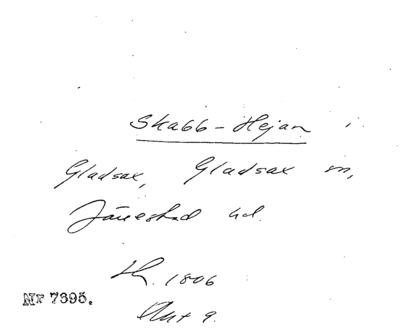 Skabb-Hejan i
Gladsax, Gladsax sn,
Järrestad hd.
1806
Akt 9.
Nr 7395.